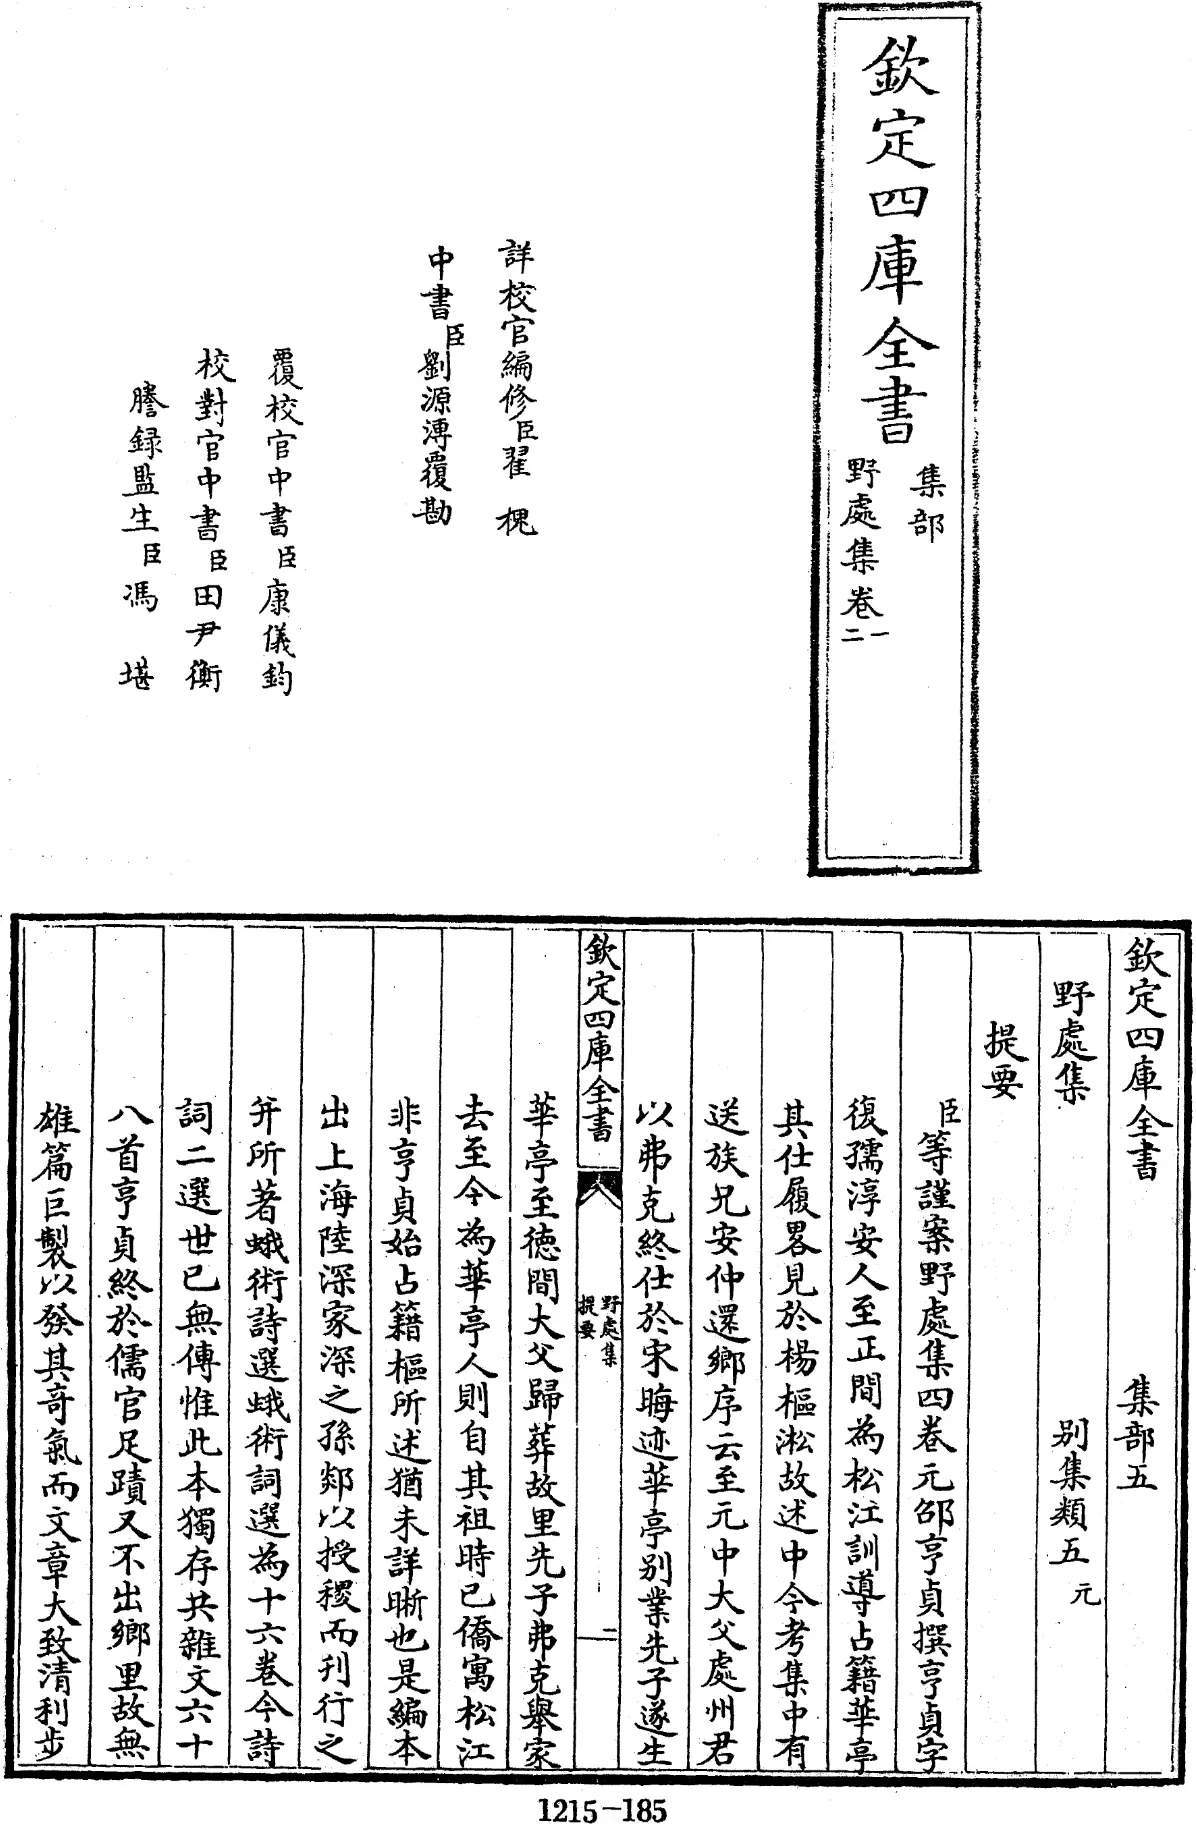 欽定四庫全書
集部
野處集卷一
二
詳校官編修臣翟槐
中書臣劉源溥覆勘
覆校官中書臣康儀鈞
校對官中書臣田尹衡
謄録監生臣馮堪
欽定四庫全書 集部五
野處集 别集類五元
提要
臣等謹案野處集四卷元邵亨貞撰亨貞字
復孺淳安人至正間為松江訓導占籍華亭
其仕履畧見於楊樞淞故述中今考集中有
送族兄安仲還鄉序云至元中大父處州君
以弗克終仕於宋晦迹華亭别業先子遂生
欽定四庫全書
野處集
提要
二
華亭至德間大父歸葬故里先子弗克舉家
去至今為華亭人則自其祖時已僑寓松江
非亨貞始占籍樞所述猶未詳晰也是編本
出上海陸深家深之孫郯以授稷而刋行之
并所著蛾術詩選蛾術詞選為十六卷今詩
詞二選世已無傳惟此本獨存共雜文六十
八首亨貞終於儒官足蹟又不出鄉里故無
雄篇巨製以發其竒氣而文章大致清利步
1215-185